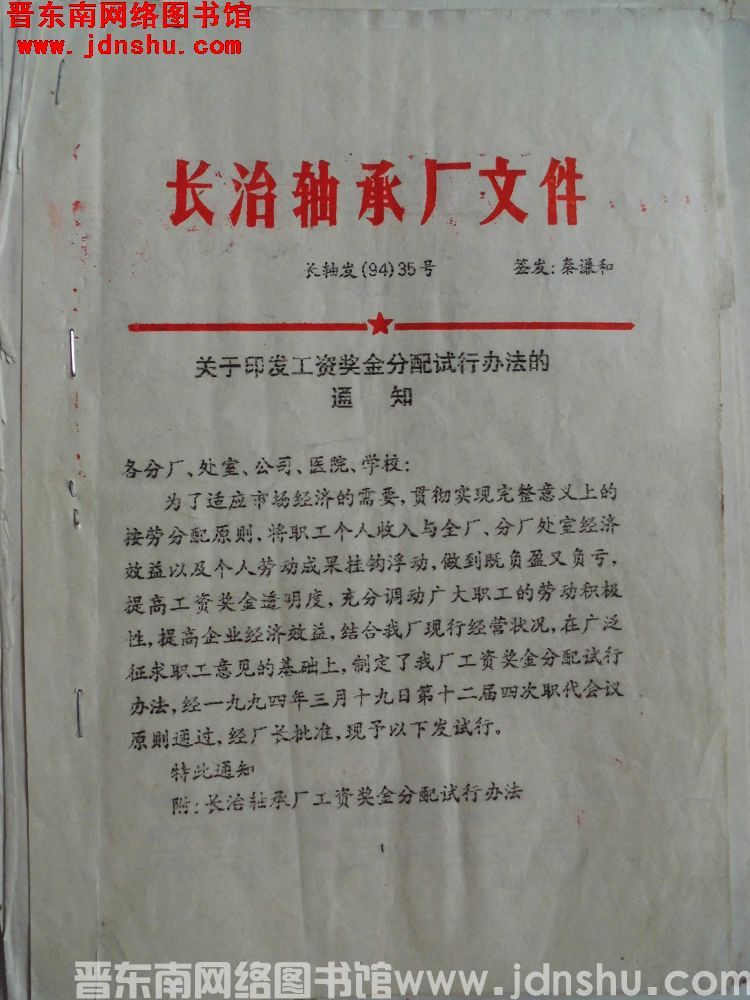 晋东南网络图书馆
www.jdnshu.com
长治轴承厂文件
长轴发(94)35号 签发:秦谦和
关于印发工资奖金分配试行办法的
通 知
各分厂、处室、公司、医院、学校:
为了适应市场经济的需要,贯彻实现完整意义上的
按劳分配原则,将职工个人收入与全厂、分厂处室经济
效益以及个人劳动成果挂钩浮动,做到既负盈又负亏,
提高工资奖金透明度,充分调动广大职工的劳动积极
性,提高企业经济效益,结合我厂现行经营状况,在广泛
征求职工意见的基础上,制定了我厂工资奖金分配试行
办法,经一九九四年三月十九日第十二届四次职代会议
原则通过,经厂长批准,现予以下发试行。
特此通知
附:长治轴承厂工资奖金分配试行办法
1
晋东南网络图书馆www.jdnshu.com